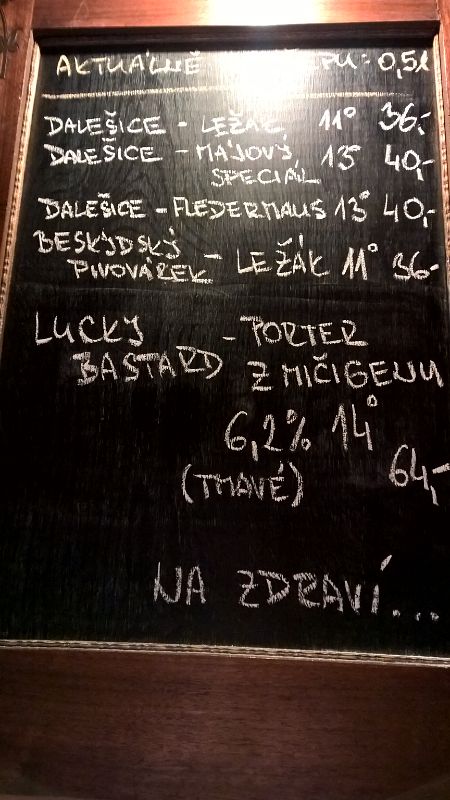 AKTUÁLNĚ 0,5l
DALEŠICE - LEŽÁK 11° 36,-
DALEŠICE - MÁJOVÝ 13° 40,-
SPECIÁL
DALEŠICE - FLEDERMAUS 13° 40,-
BESKYDSKÝ
PIVOVÁREK - LEŽÁK 11° 36-
LUCKY - PORTER
BASTARD Z MIČIGENU
6,2% 14°
64,-
(TMAVÉ)
NA ZDRAVÍ...